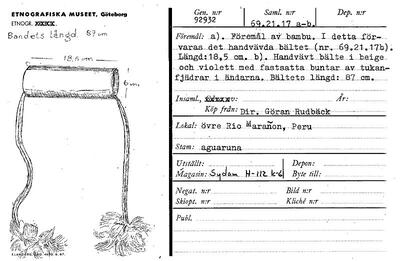 ETNOGRAFISKA MUSEET, Göteborg
ETNOGR.
Bandets längd. 87 cm
18,5 cm
6 cm
Gen. n:r
92932
Saml. n:r
69.21.17 a-b.
Dep. n:r
Föremål: a). Föremål av bambu. I detta för-
varas det handvävda bältet (nr. 69.21.17b).
Längd:18,5 cm. b). Handvävt bälte i beige
och violett med fastsatta buntar av tukan-
fjädrar i ändarna. Bältets längd: 87 cm.
Insaml.,
År:
Köp från: Dir. Göran Rudbäck
Lokal: övre Rio Marañon, Peru
Stam: aguaruna
Utställt:
Depon:
Magasin: Sydam H-112 k-6
Byte till:
Negat. n:r
Bild n:r
Skiopt. n:r
Kliché n:r
Publ.